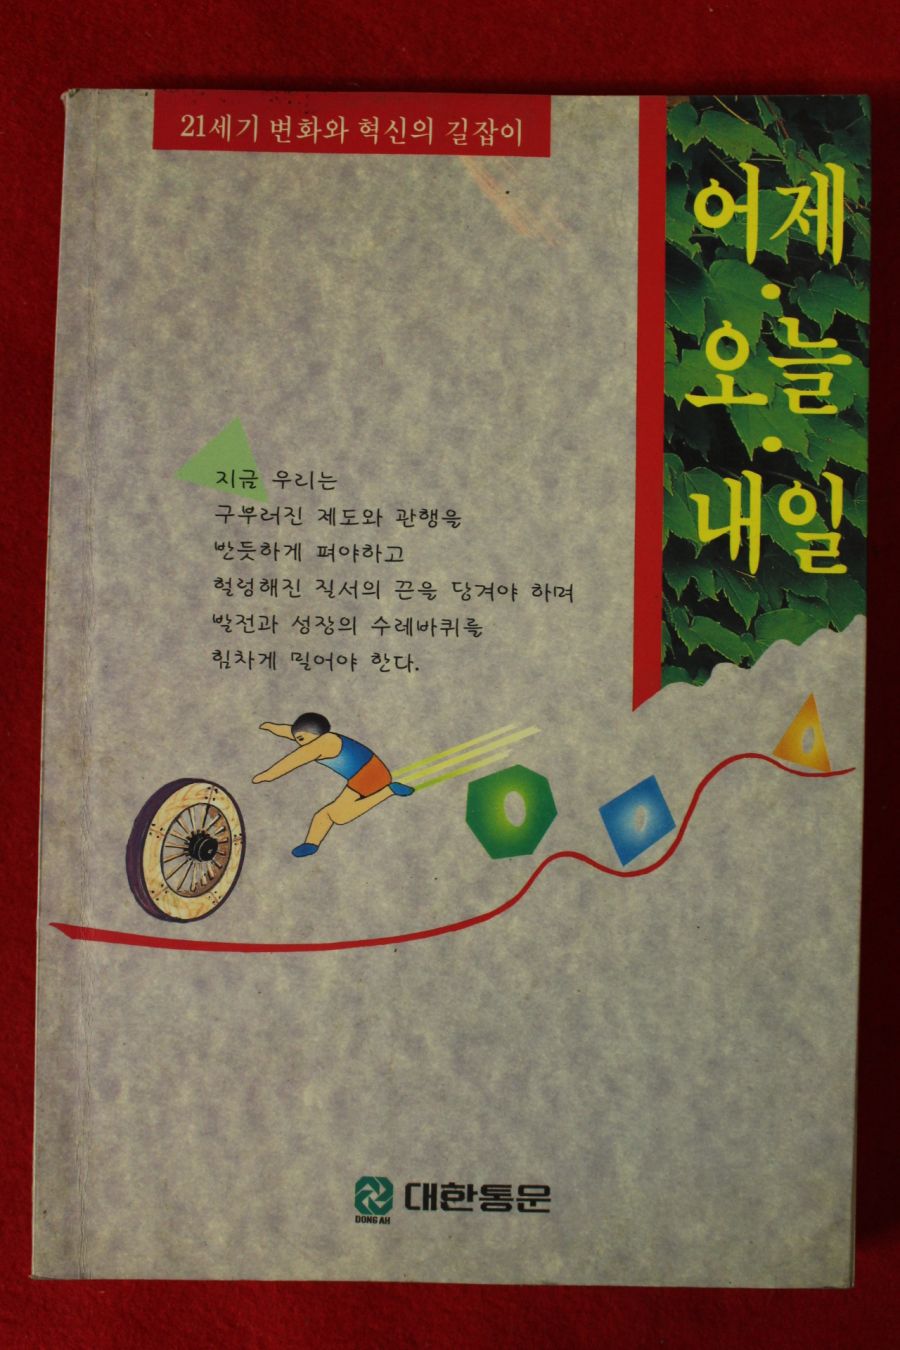 21세기 변화와 혁신의 길잡이
어제
·
오늘
·
내일
지금 우리는
구부러진 제도와 관행을
반듯하게 펴야하고
헐렁해진 질서의 끈을 당겨야 하며
발전과 성장의 수레바퀴를
힘차게 밀어야 한다.
대한통운
DONG AH